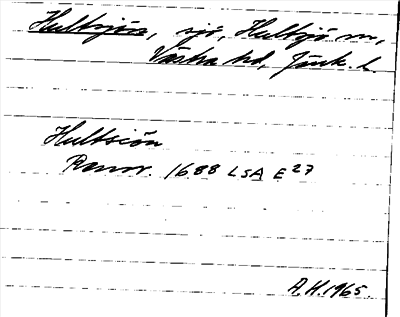 Hultsjön, sjö, Hultsjö sn,
Västra hd, Jönk. l.
Hultsiön
Rannr. 1688 LSA E 27
A.H. 1965.